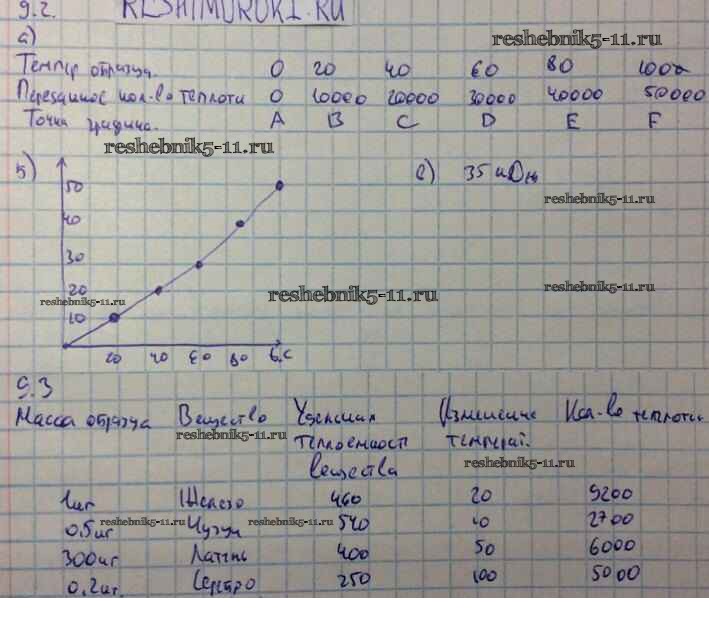 9.2. RESHIMUROKI.RU
а)
reshebnik5-11.ru
Темпер образца. 0 20 40 60 80 100
Переданное кол-во теплоты 0 10000 20000 30000 40000 50000
Точка графика. A B C D E F
reshebnik5-11.ru
50
40
30
20
10
20 40 60 80 t,C
35 кДж
reshebnik5-11.ru
reshebnik5-11.ru
reshebnik5-11.ru
reshebnik5-11.ru
9.3
Масса образца Вещество Удельная Изменение Кол-во теплоты
reshebnik5-11.ru теплоемкост температ.
вещества reshebnik5-11.ru
1кг Железо 460 20 9200
0.5кг Чугун 540 10 2700
reshebnik5-11.ru reshebnik5-11.ru
300кг Латунь 400 50 6000
0,2кг. Серебро 250 100 5000